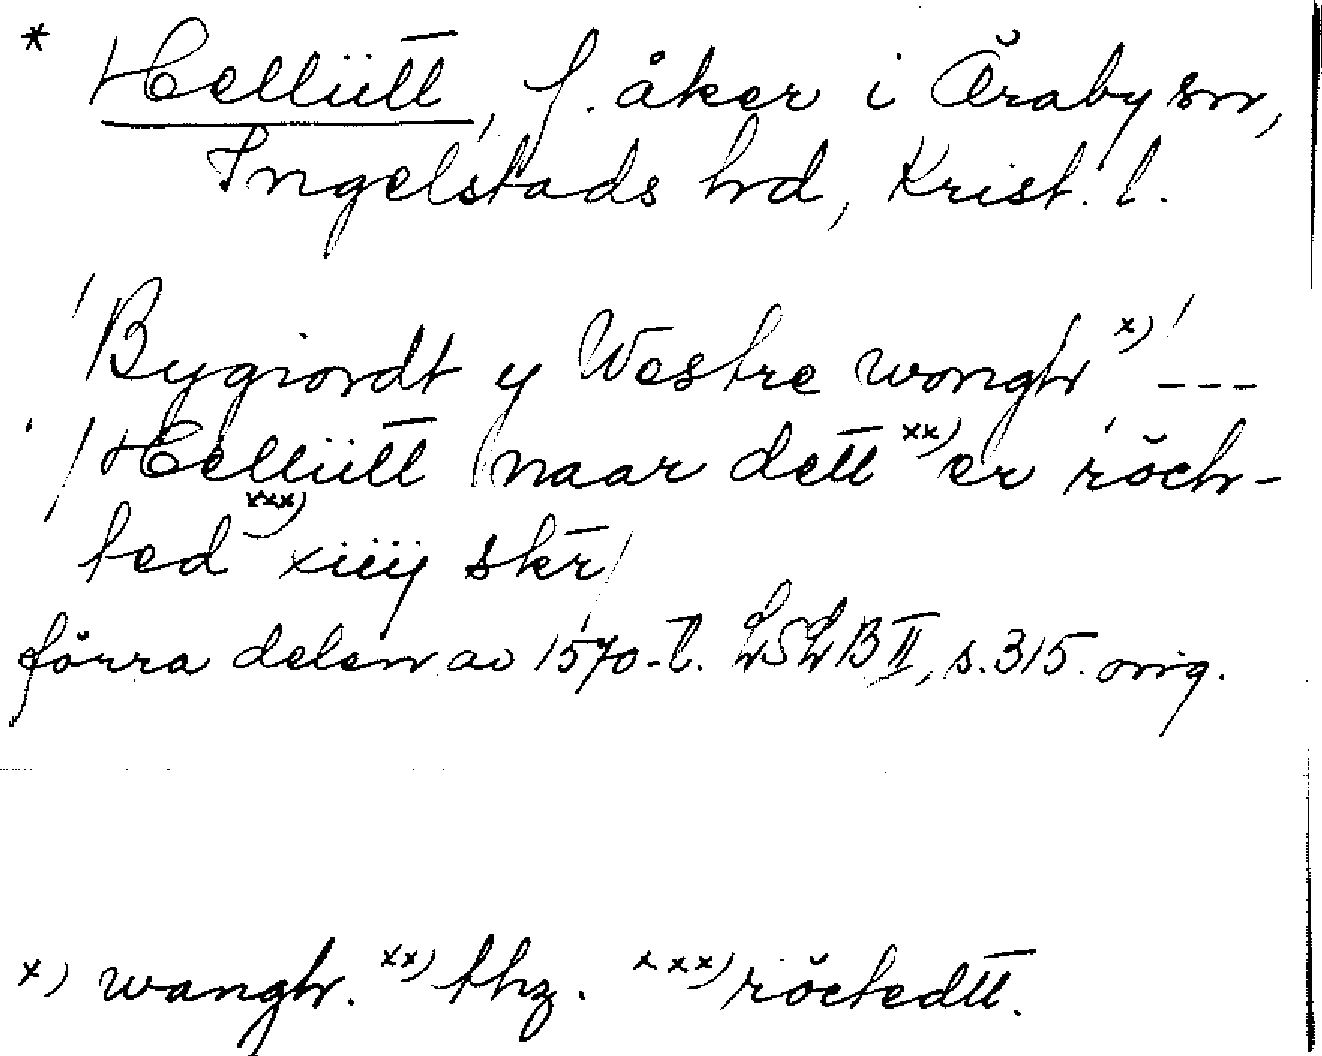 * Hellütt, f. åker i Öraby sn,
Ingelstads hd, Krist. l.
'Bygiordt y Westre wongh x)' ---
'/Hellütt naar dett xx) er röch-
ted xxx) xiiij skr/
förra delen av 1570-t. LSLB II, s. 315. orig.
x) wangh. xx) thz. xxx) röctedtt.